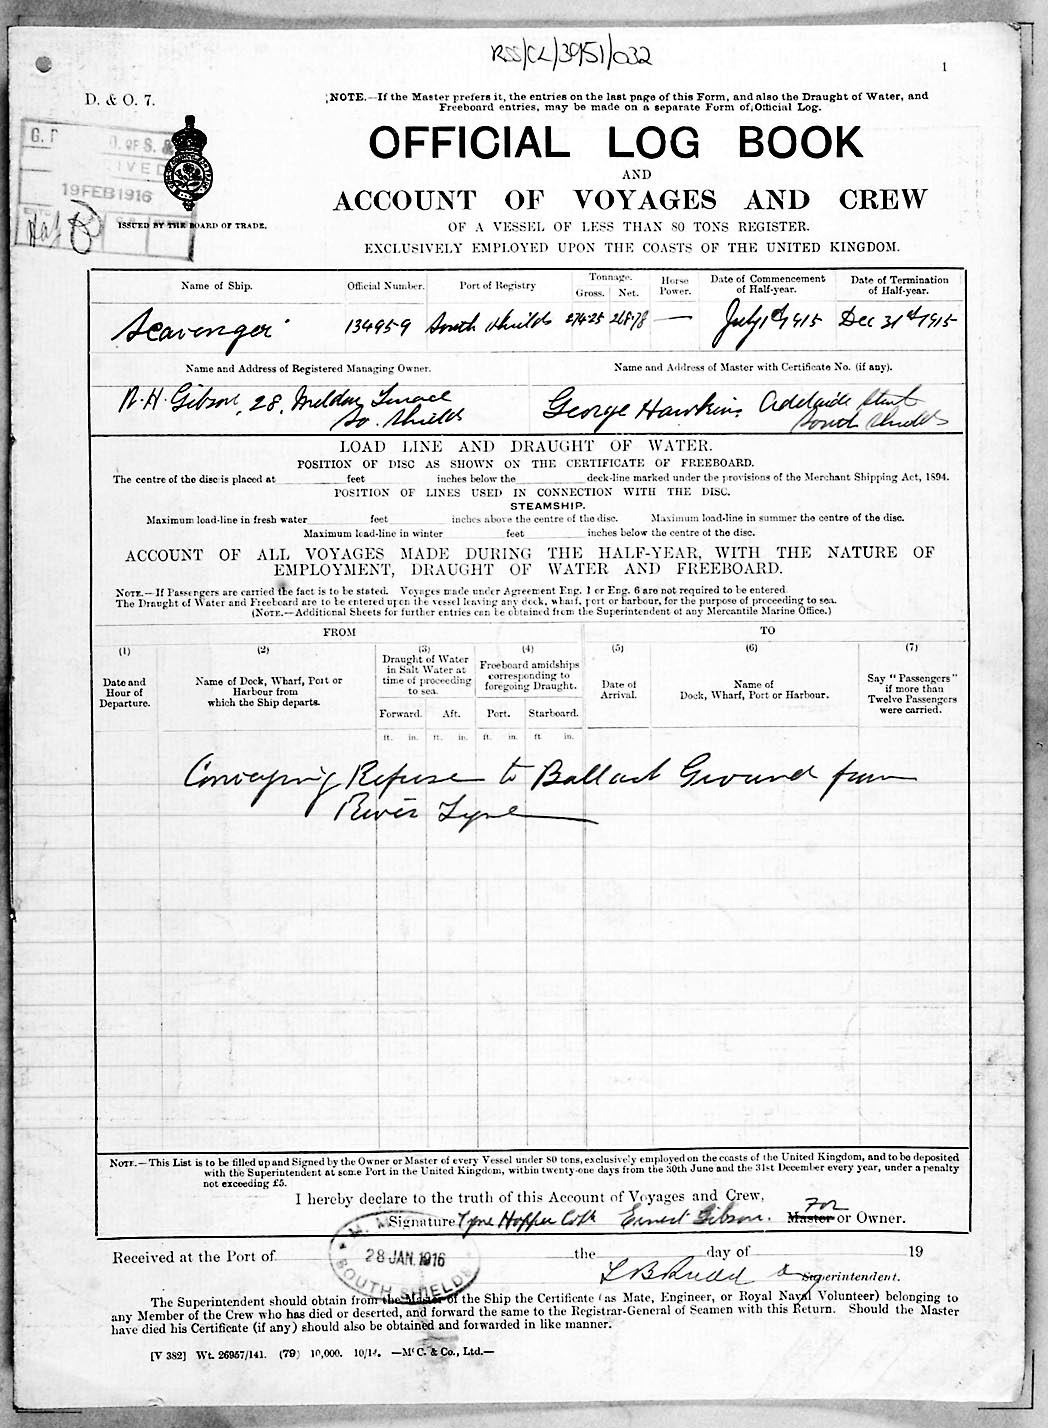 RSS/CL/3951/032
1
D. & O. 7.
NOTE.—If the Master prefers it, the entries on the last page of this Form, and also the Draught of Water, and
Freeboard entries, may be made on a separate Form of Official Log.
OFFICIAL LOG BOOK
AND
ACCOUNT OF VOYAGES AND CREW
OF A VESSEL OF LESS THAN 80 TONS REGISTER.
EXCLUSIVELY EMPLOYED UPON THE COASTS OF THE UNITED KINGDOM.
19 FEB 1916
ISSUED BY THE BOARD OF TRADE.
Name of Ship. Official Number. Port of Registry Tonnage. Gross. Net. Horse Power. Date of Commencement of Half-year. Date of Termination of Half-year.
Scavenger 134959 South Shields 274.25 268.78 — July 1st 1915 Dec 31st 1915
Name and Address of Registered Managing Owner. Name and Address of Master with Certificate No. (if any).
R. H. Gibson, 28, Meldon Terrace
So. Shields
George Hawkins Adelaide Street
South Shields
LOAD LINE AND DRAUGHT OF WATER.
POSITION OF DISC AS SHOWN ON THE CERTIFICATE OF FREEBOARD.
The centre of the disc is placed at feet inches below the deck-line marked under the provisions of the Merchant Shipping Act, 1894.
POSITION OF LINES USED IN CONNECTION WITH THE DISC.
STEAMSHIP.
Maximum load-line in fresh water feet inches above the centre of the disc. Maximum load-line in summer the centre of the disc.
Maximum load-line in winter feet inches below the centre of the disc.
ACCOUNT OF ALL VOYAGES MADE DURING THE HALF-YEAR, WITH THE NATURE OF
EMPLOYMENT, DRAUGHT OF WATER AND FREEBOARD.
NOTE.—If Passengers are carried the fact is to be stated. Voyages made under Agreement Eng. 1 or Eng. 6 are not required to be entered.
The Draught of Water and Freeboard are to be entered upon the vessel leaving any dock, wharf, port or harbour, for the purpose of proceeding to sea.
(NOTE.—Additional Sheets for further entries can be obtained from the Superintendent of any Mercantile Marine Office.)
FROM TO
(1) (2) (3) (4) (5) (6) (7)
Date and Hour of Departure.
Name of Dock, Wharf, Port or Harbour from which the Ship departs.
Draught of Water in Salt Water at time of proceeding to sea.
Freeboard amidships corresponding to foregoing Draught.
Date of Arrival.
Name of Dock, Wharf, Port or Harbour.
Say "Passengers" if more than Twelve Passengers were carried.
Forward. Aft. Port. Starboard.
ft. in. ft. in. ft. in. ft. in.
Conveying Refuse to Ballast Ground from
River Tyne
NOTE.—This List is to be filled up and Signed by the Owner or Master of every Vessel under 80 tons, exclusively employed on the coasts of the United Kingdom, and to be deposited
with the Superintendent at some Port in the United Kingdom, within twenty-one days from the 30th June and the 31st December every year, under a penalty
not exceeding £5.
I hereby declare to the truth of this Account of Voyages and Crew,
For
Signature Tyne Hopper Co Ld Ernest Gibson. Master or Owner.
Received at the Port of the day of 19
28 JAN. 1916
SOUTH SHIELDS
Superintendent.
The Superintendent should obtain from the Master of the Ship the Certificate (as Mate, Engineer, or Royal Naval Volunteer) belonging to
any Member of the Crew who has died or deserted, and forward the same to the Registrar-General of Seamen with this Return. Should the Master
have died his Certificate (if any) should also be obtained and forwarded in like manner.
[V 382] Wt. 26957/141. (79) 10,000. 10/14. —McC. & Co., Ltd.—